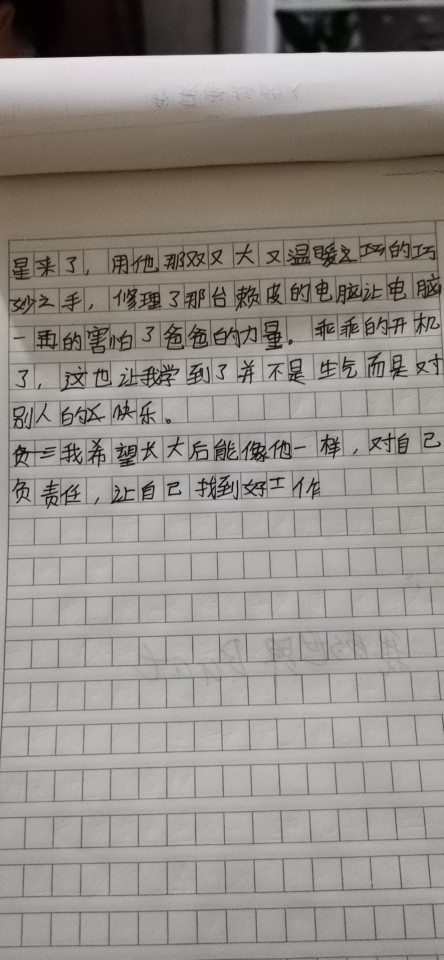 星来了，用他那双又大又温暖之巧的巧
妙之手，修理了那台赖皮的电脑让电脑
一再的害怕了爸爸的力量。乖乖的开机
了，这也让我学到了并不是生气而是对
别人的不快乐。
负三我希望长大后能像他一样，对自己
负责任，让自己找到好工作